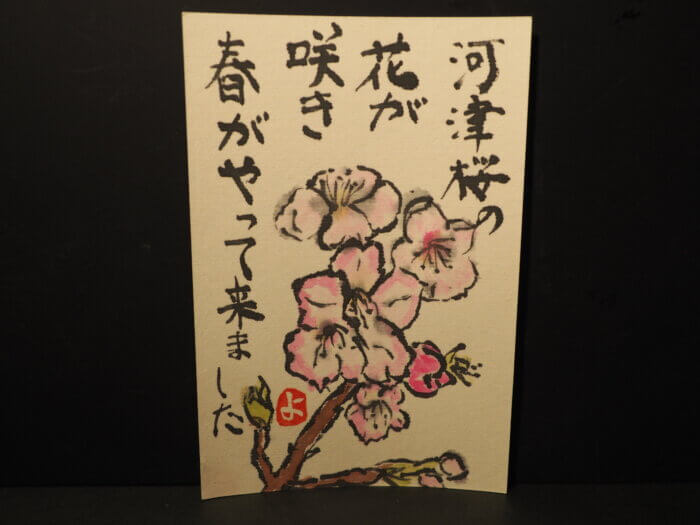 河津桜の
花が
咲き
春がやって来ました
よ